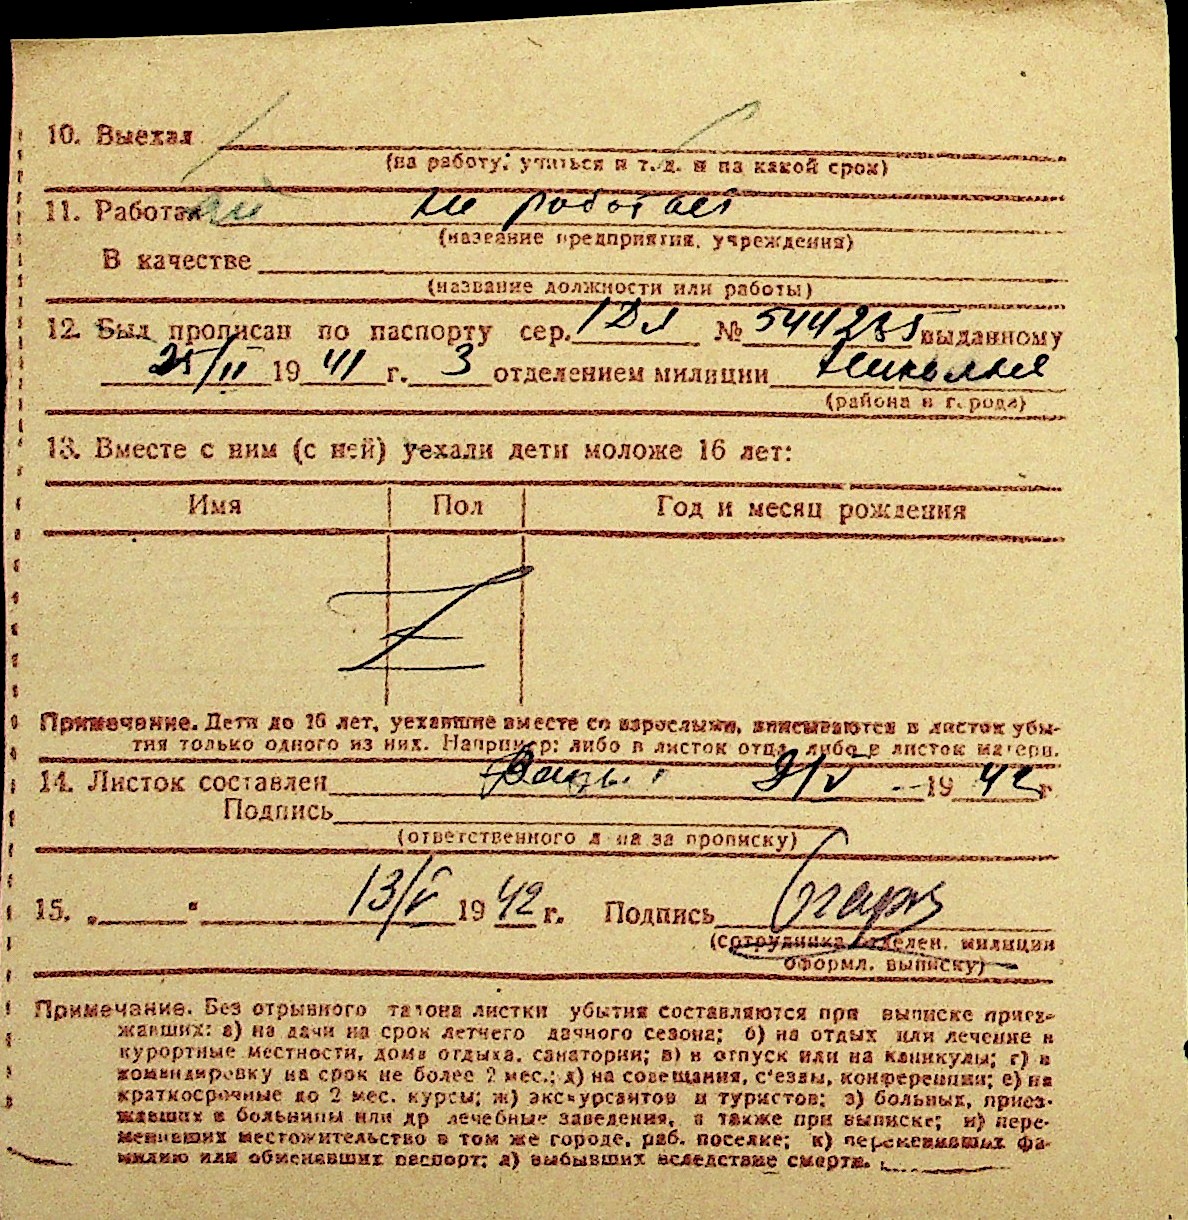 10. Выехал
(на работу, учиться и т. д. и на какой срок)
11. Работал не работает
(название предприятия, учреждения)
В качестве
(название должности или работы)
12. Был прописан по паспорту сер. № 544235 выданному
25/II 1941 г. 3 отделением милиции
(района и города)
13. Вместе с ним (с ней) уехали дети моложе 16 лет:
Имя Пол Год и месяц рождения
Z
Примечание. Дети до 16 лет, уехавшие вместе со взрослыми, вписываются в листок убы-
тия только одного из них. Например: либо в листок отца, либо в листок матери.
14. Листок составлен 9/V 1942 г.
Подпись
(ответственного л-ца за прописку)
15. „ " 13/V 1942 г. Подпись
(сотрудника отделен. милиции
оформл. выписку)
Примечание. Без отрывного талона листки убытия составляются при выписке приез-
жавших: а) на дачи на срок летнего дачного сезона; б) на отдых или лечение в
курортные местности, дома отдыха, санатории; в) в отпуск или на каникулы; г) в
командировку на срок не более 2 мес.; д) на совещания, с'езды, конференции; е) на
краткосрочные до 2 мес. курсы; ж) экскурсантов и туристов; з) больных, приез-
жавших в больницы или др лечебные заведения, а также при выписке; и) пере-
менивших местожительство в том же городе, раб. поселке; к) переменивших фа-
милию или обменявших паспорт; л) выбывших вследствие смерти.